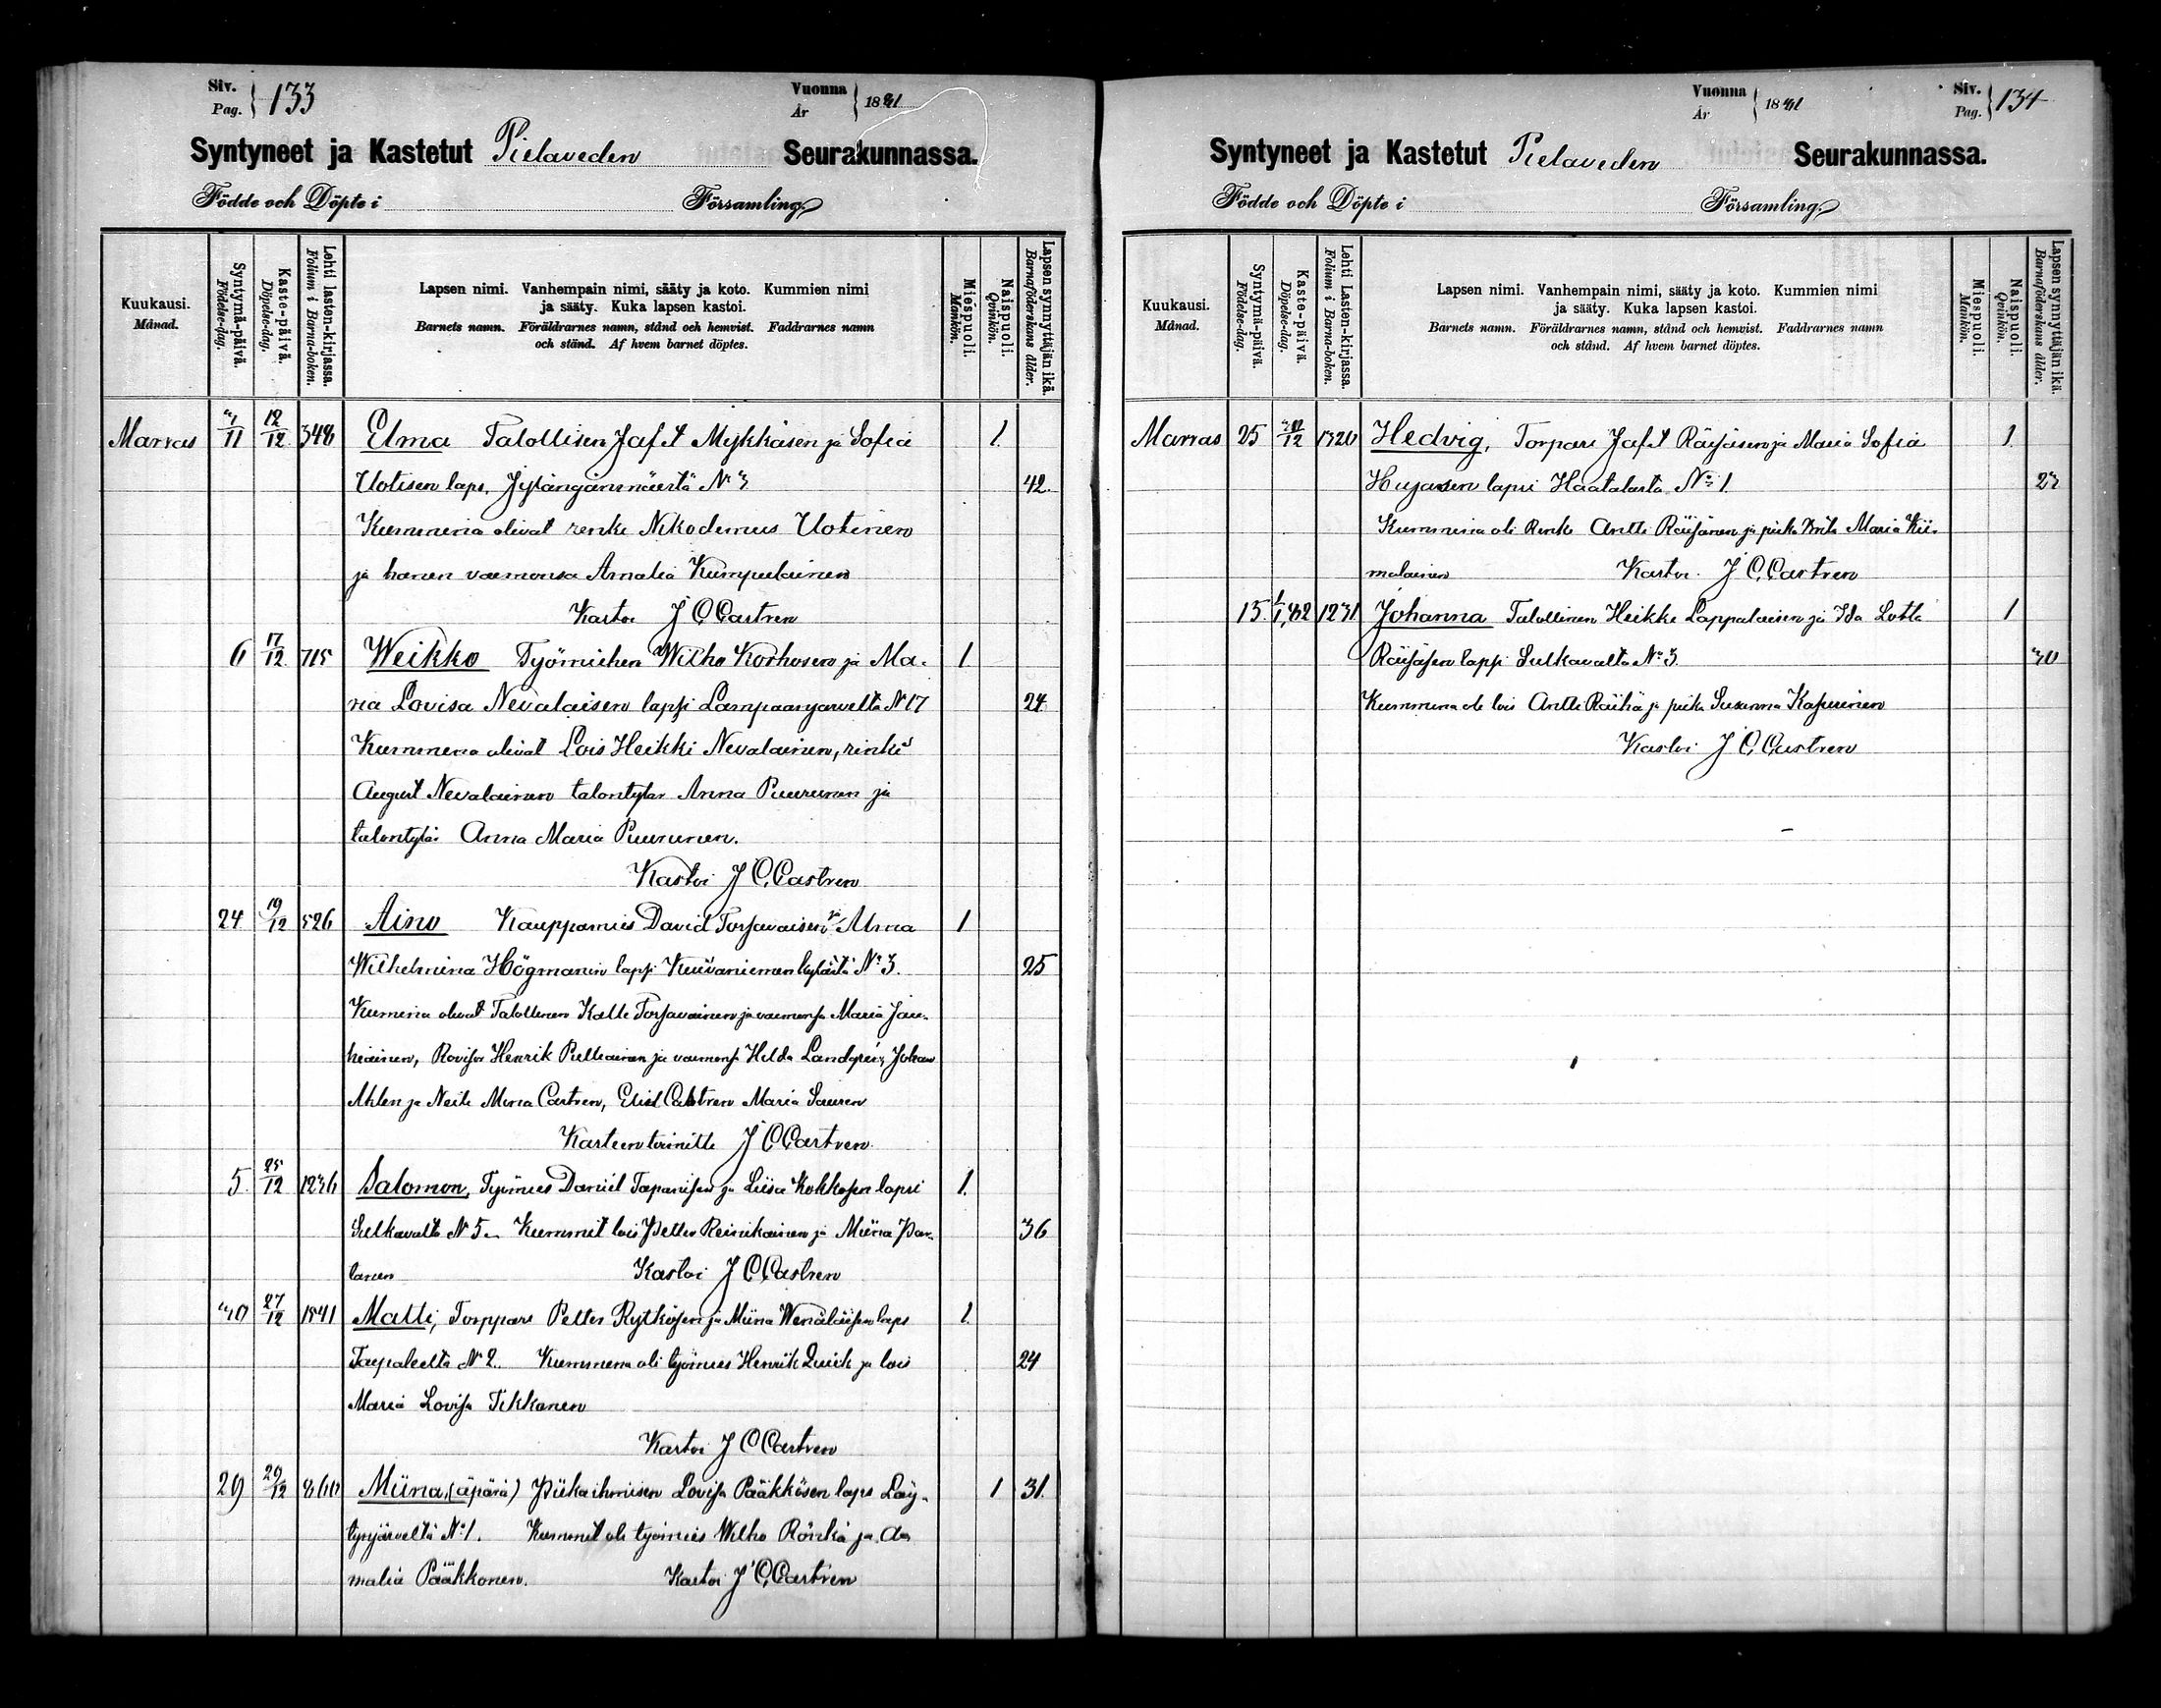 Siv.
Pag. } 133
Vuonna
År } 1881
Syntyneet ja Kastetut Pielaveden Seurakunnassa.
Födde och Döpte i Församling.
Kuukausi. Månad.
Syntymä-päivä. Födelse-dag.
Kaste-päivä. Döpelse-dag.
Lehti lasten-kirjassa. Folium i Barna-boken.
Lapsen nimi. Vanhempain nimi, sääty ja koto. Kummien nimi
ja sääty. Kuka lapsen kastoi.
Barnets namn. Föräldrarnes namn, stånd och hemvist. Faddrarnes namn
och stånd. Af hvem barnet döptes.
Miespuoli. Mankön.
Naispuoli. Qvinkön.
Lapsen synnyttäjän ikä. Barnaföderskans ålder.
Marras 11 12/12 348 Elma Talollisen Jafet Mykkäsen ja Sofia 1.
Uotisen laps. Jylänganmäestä No 3 42.
Kummina olivat renki Nikodemus Uotinen
ja hänen vaemonsa Amalia Kumpulainen
Kastoi J C Castren
6 17/12 715 Weikko Työmiehen Wilho Korhosen ja Ma- 1.
ria Lovisa Nevalaisen lapsi Lampaanjarvelta N 17 24
Kummena olivat Lois Heikki Nevalainen, renki
August Nevalainen talontytar Anna Puurunen ja
talontytär Anna Maria Puurunen.
Kastoi J C Castren
24 19/12 526 Aino Kauppamies David Torsavaisen ja Mina 1
Wilhelmina Högmanin lapsi Kuivaniemen kylästä No 3. 25
Kumina olivat Talollinen Kalle Torsavainen ja vaemonsa Maria Jau-
hiainen, Henrik Pulkainen ja vaemonsa Hilda Landgren, Johan
Ahlen ja Neiti Mina Castren, Elise Castren Maria Sauren
Kasteen toimitti J C Castren.
5. 25/12 1236 Salomon, Työmies Daniel Tapanisen ja Liisa Kokkosen lapsi 1.
Sulkavalta N 5. Kummit lois Petter Reinikainen ja Miina Par- 36
tanen Kastoi J C Castren
30 27/12 1541 Matti, Torppari Petter Rytkösen ja Miina Wenäläisen laps 1.
Taipaleelta No 2. Kummena oli työmies Henrik Quick ja lois 24
Maria Lovisa Tikkanen
Kastoi J C Castren
29 29/12 860 Miina, (äpärä) Piikaihmisen Lovisa Pääkkösen laps Läy- 1 31.
tynjärveltä No 1. Kummit oli työmies Wilho Rönkä ja A-
malia Pääkkonen. Kastoi J C Castren
Vuonna
År } 1881
Siv.
Pag. } 134
Syntyneet ja Kastetut Pielaveden Seurakunnassa.
Födde och Döpte i Församling.
Kuukausi. Månad.
Syntymä-päivä. Födelse-dag.
Kaste-päivä. Döpelse-dag.
Lehti Lasten-kirjassa. Folium i Barna-boken.
Lapsen nimi. Vanhempain nimi, sääty ja koto. Kummien nimi
ja sääty. Kuka lapsen kastoi.
Barnets namn. Föräldrarnes namn, stånd och hemvist. Faddrarnes namn
och stånd. Af hvem barnet döptes.
Miespuoli. Mankön.
Naispuoli. Qvinkön.
Lapsen synnyttäjän ikä. Barnaföderskans ålder.
Marras 25 1320 Hedvig, Torpari Jafet Räisäsen ja Maria Sofia 1.
Hujasen lapsi Haatalasta No 1. 23
Kummina oli Renki Antti Räisänen ja piika Brita Maria Kii-
malainen Kastoi J C Castren
15. 1/1 82 1231 Johanna Talollinen Heikki Lappalaisen ja Ida Lotta 1
Räisäsen lapsi Sulkavalta No 3. 30
Kummina oli lois Antti Räihä ja piika Susanna Kapuinen
Kastoi J C Castren